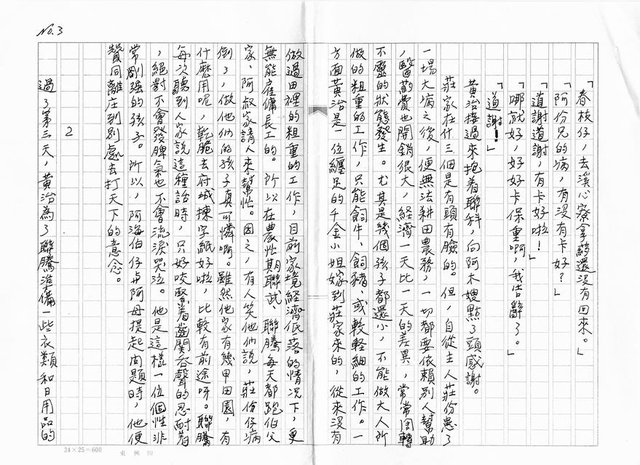 No.3
「春枝仔，去溪心寮拿藥還沒有回來。」
「阿份兄的病，有沒有卡好？」
「道謝道謝，有卡好啦！」
「哪就好，好好卡保重啊，我告辭了。」
「道謝！」
黃治接過來抱着聯科，向阿木嫂點了頭感謝。
莊家在什三個是有頭有臉的。但，自從主人莊份患了
一場大病之後，便無法耕田農務，一切都要依賴別人幫助
，醫藥費也開銷很大，經濟一天比一天的差異，常常周轉
不靈的狀態發生。尤其是幾個孩子都還小，不能做大人所
做的粗重的工作，只能飼牛、飼豬、或較輕細的工作。一
方面黃治是一位纏足的千金小姐嫁到莊家來的，從來沒有
做過田裡的粗重的工作，目前家境經濟低落的情況下，更
無能雇傭長工的。所以在農忙期聯誠、聯騰每天都跑伯父
家、阿叔家請人來幫忙。因之，有人笑他們說，莊份仔病
倒了，做他們的孩子真可憐啊。雖然他家有幾甲田園，有
什麼用呢，乾脆去府城揀字紙好啦，比較有前途呀。聯騰
每次聽到人家說這種話時，只好咬緊着齒關吞聲的忍耐着
，絕對不會發脾氣也不會流淚哭泣。他是這樣一位個性非
常剛強的孩子。所以，阿海伯仔與阿母提起問題時，他便
贊同離庄到別處去打天下的意念。
2
過了第三天，黃治為了聯騰準備一些衣類和日用品的
24×25=600